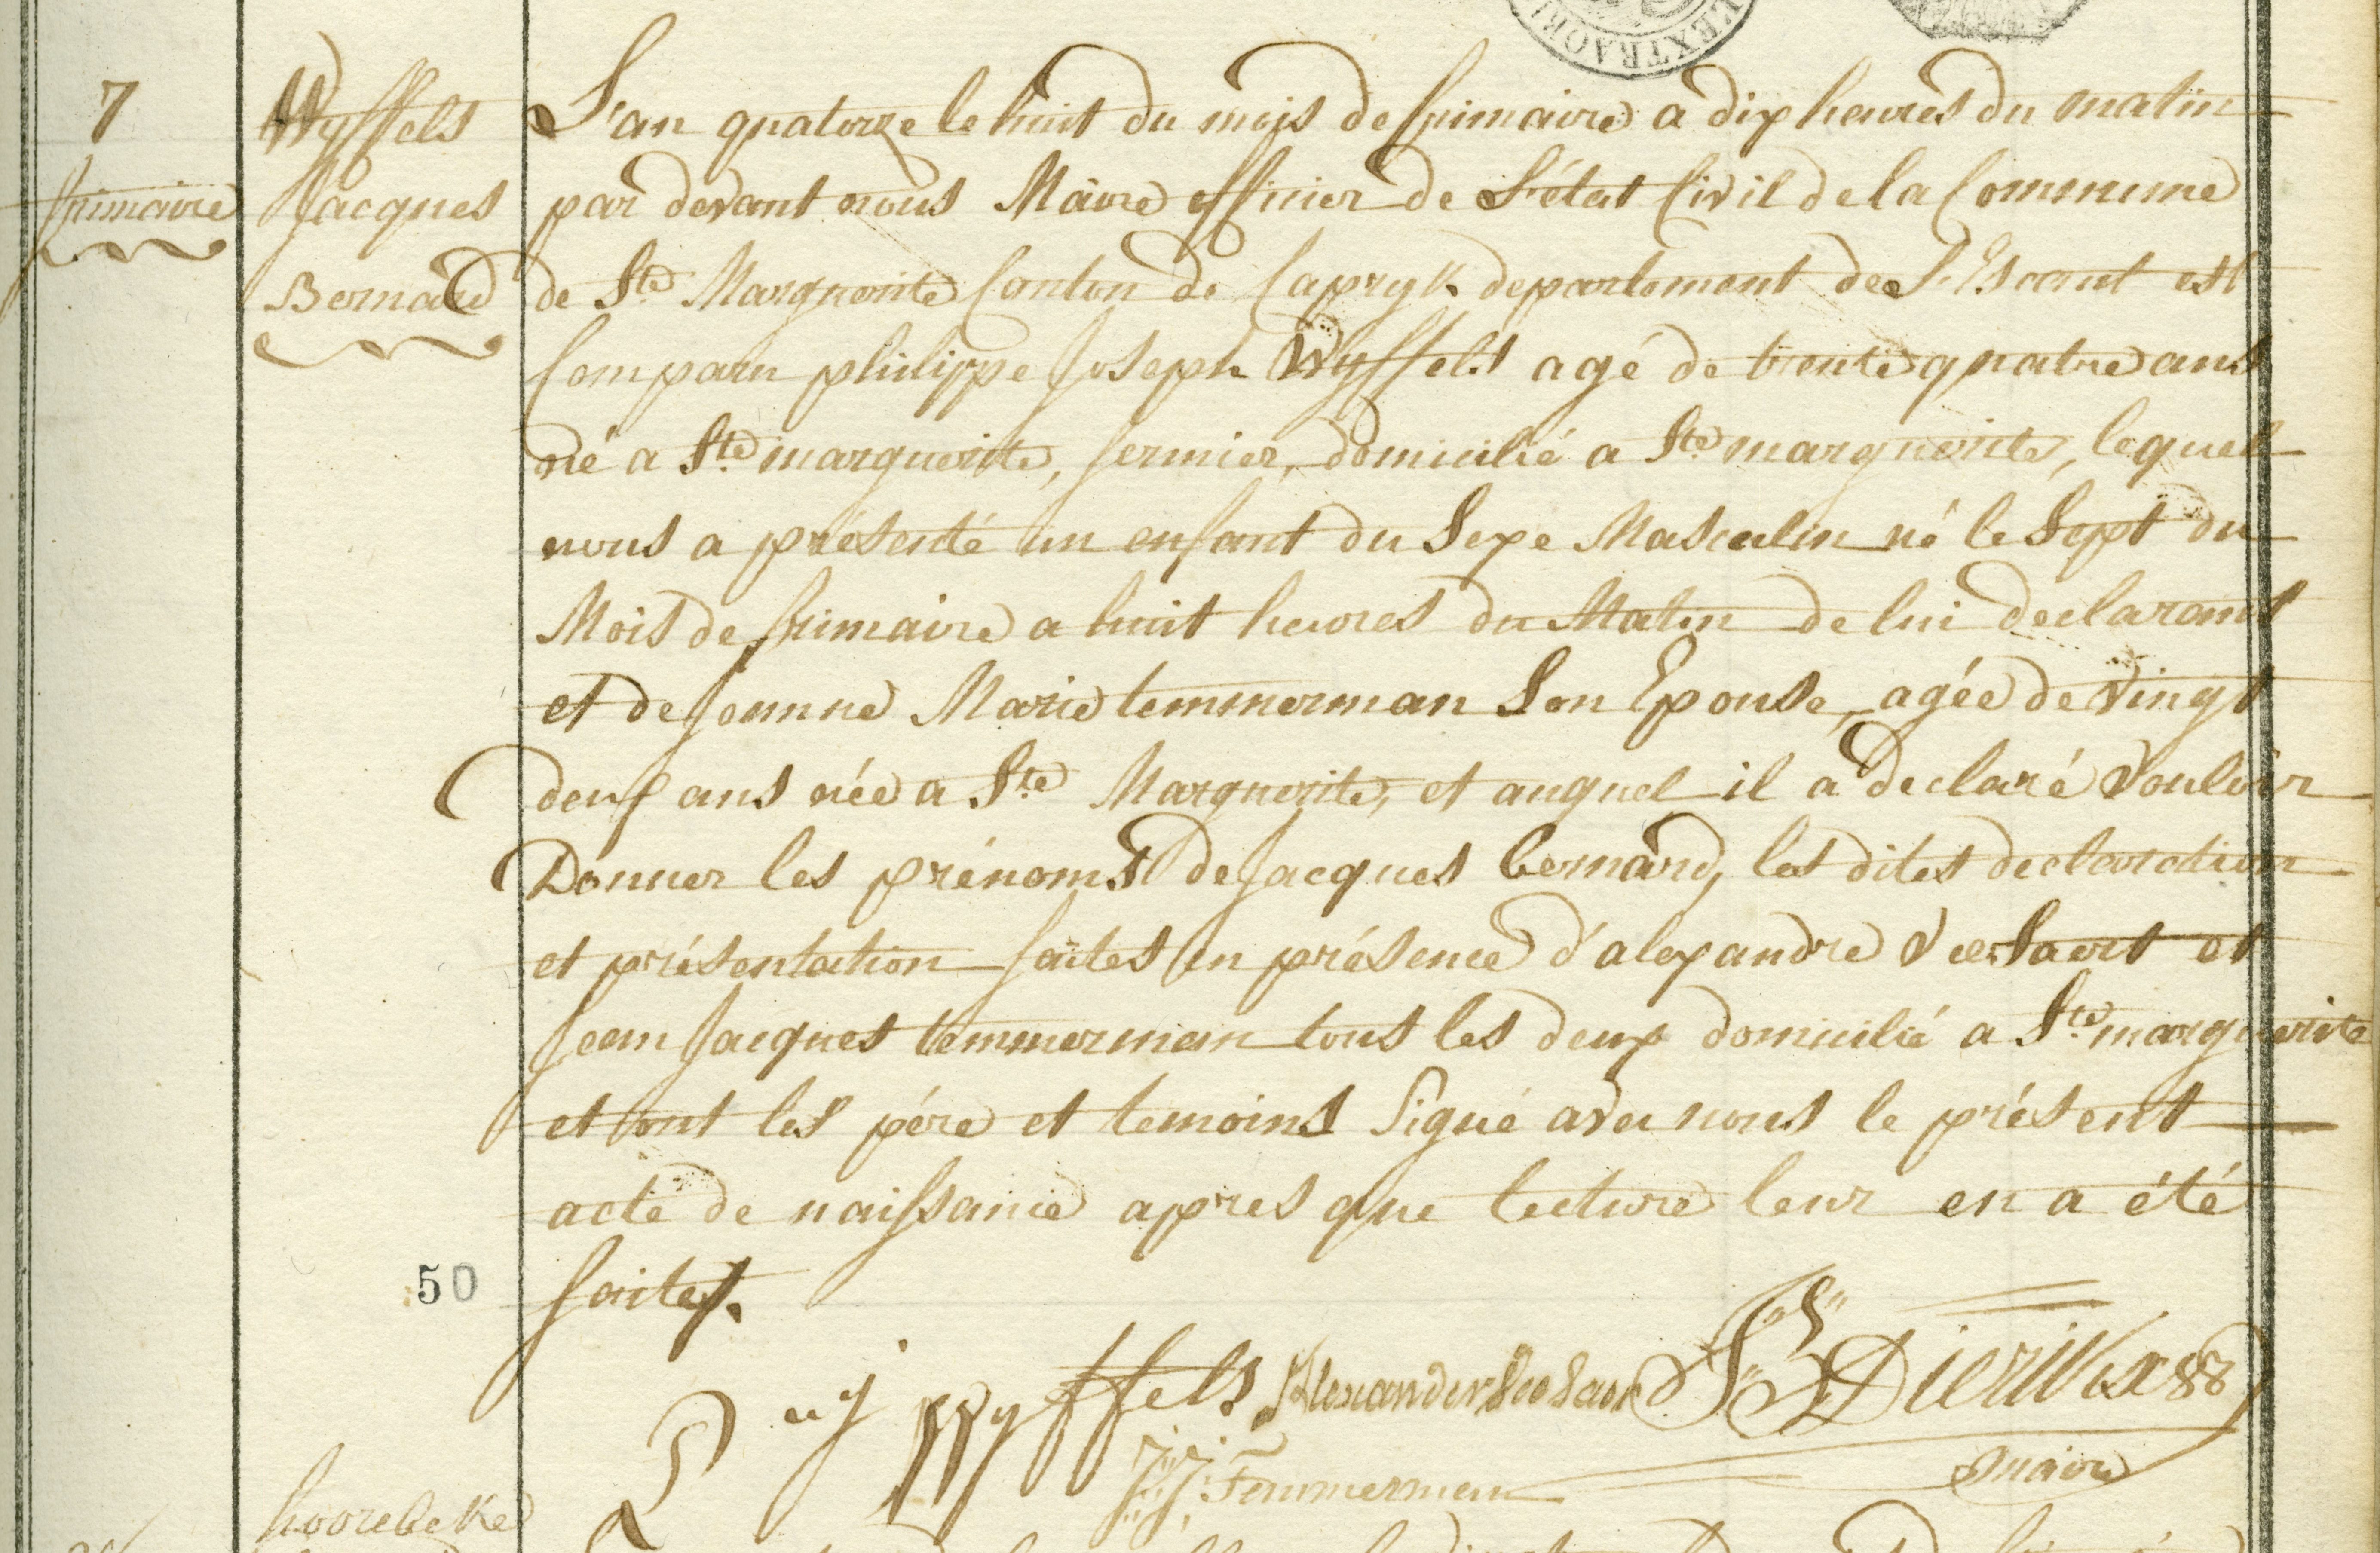 L'EXTRAORD
7
frimaire
Wyffels
Jacques
Bernard
L'an quatorze le huit du mois de frimaire a dix heures du matin
par devant nous Maire officier de l'état Civil de la Commune
de Ste Marguerite Canton de Capryk departement de L'Escaut est
Comparu philippe Joseph Wyffels agé de trente quatre ans
né a Ste marguerite, fermier, domicilié a Ste marguerite, lequel
nous a présenté un enfant du Sexe Masculin né le Sept du
Mois de frimaire a huit heures du Matin de lui declarant
et de Jeanne Marie temmerman Son Epouse, agée de vingt
deux ans née a Ste Marguerite, et auquel il a declaré vouloir
Donner les prénoms de Jacques bernard, les dites declaration
et présentation faites en présence d'alexandre Versaert et
Jean Jacques temmerman tous les deux domicilié a Ste marguerite
et ont les pére et temoins Signé avec nous le présent
acte de naissance apres que lecture leur en a été
faites.
50
Wyffels Alexander Dierikx
J: J: Temmerman
maire
hoorebeke